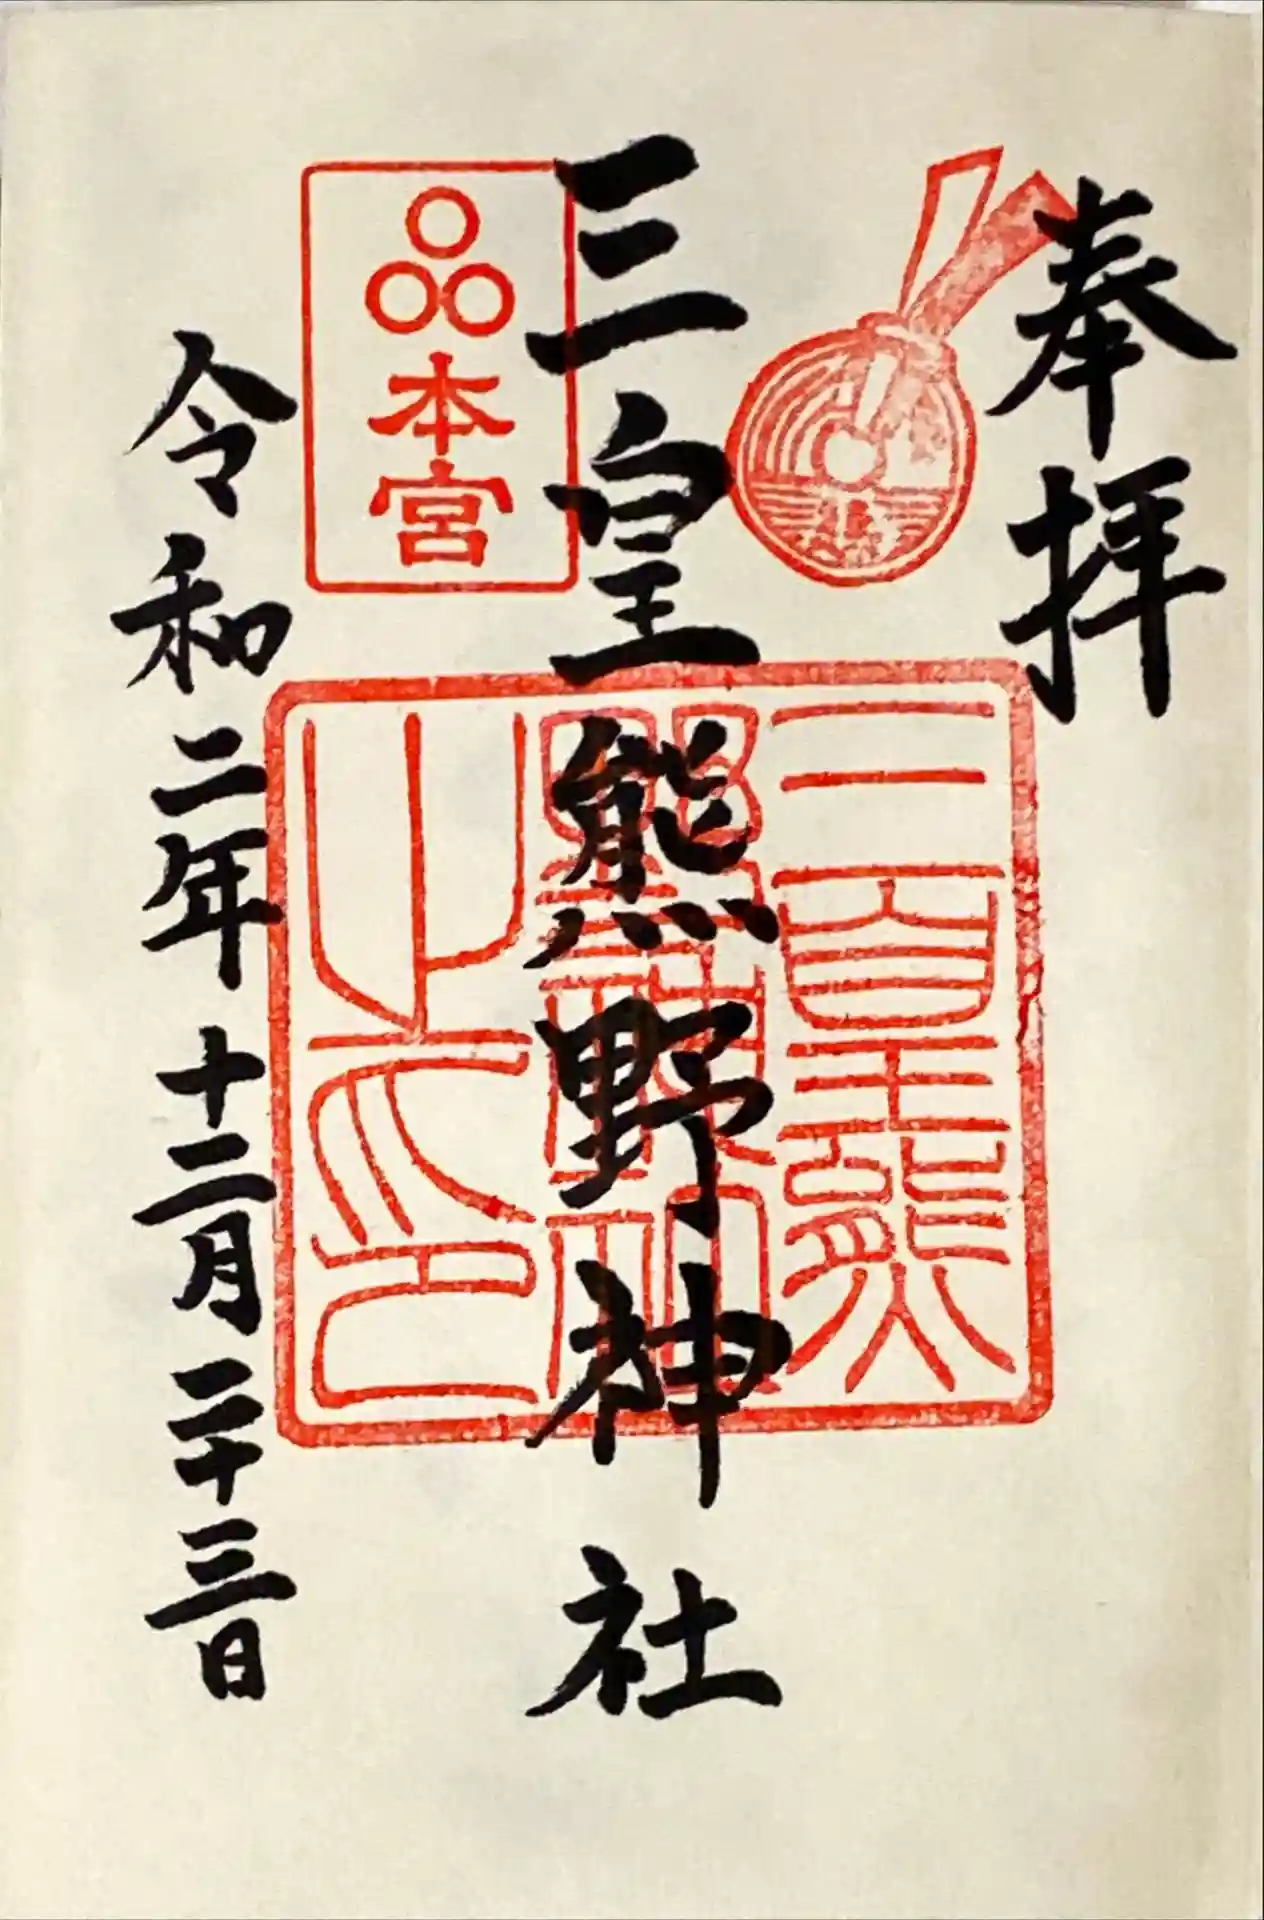 奉拝
三皇熊野神社
三皇熊
野神社
之印
本宮
令和二年十二月二十三日